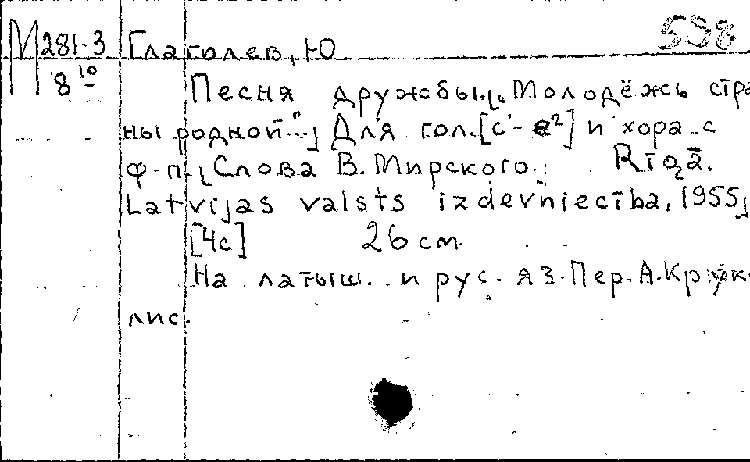 М 281-3 Глаголев, Ю 538
8 10 Песня дружбы. „Молодёжь стра
ны родной..." Для гол. [c'-e²] и хора с
ф-п. Слова В. Мирского. Rīgā.
Latvijas valsts izdevniecība, 1955,
[4с] 26 см.
На латыш. и рус. яз. Пер. А. Крук-
лис.